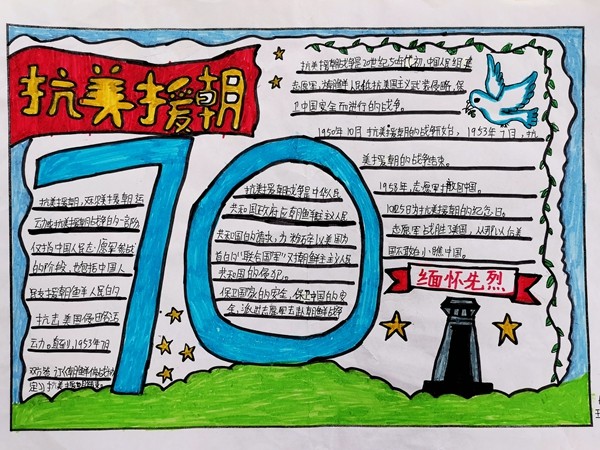 抗美援朝
70
抗美援朝战争是20世纪50年代初,中国人民组
志愿军,为朝鲜人民抵抗美国主义武装侵略,保
卫中国安全而进行的战争。
1950年10月抗美援朝的战争开始,1953年7月,抗
美援朝的战争结束。
1958年,志愿军撤回中国。
10月25日为抗美援朝的纪念日。
志愿军战胜了美国,从那以后美
国不敢在小瞧中国。
缅怀先烈
抗美援朝,又叫抗美援朝运
动或抗美援朝战争的一部分
仅指中国人民志愿军参战
的阶段,也包括中国人
民支援朝鲜人民的
抗击美国侵
1953年7月
抗美援朝战争是中华人民
共和国政府应朝鲜民主主义人民
共和国的请求,为粉碎以美国为
首的“联合国军”对朝鲜民主主义人民
共和国的侵犯。
保卫国家的安全,保卫中国的安
全,派出志愿军赴朝鲜战争